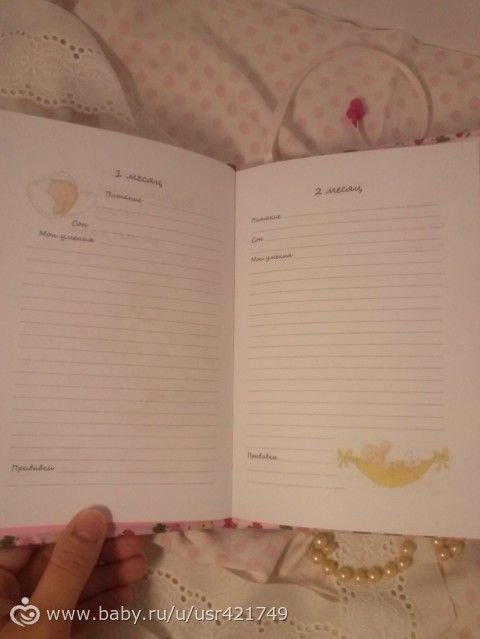 1 месяц
Питание
Сон
Мои умения
Прививки
2 месяц
Питание
Сон
Мои умения
Прививки
www.baby.ru/u/usr421749